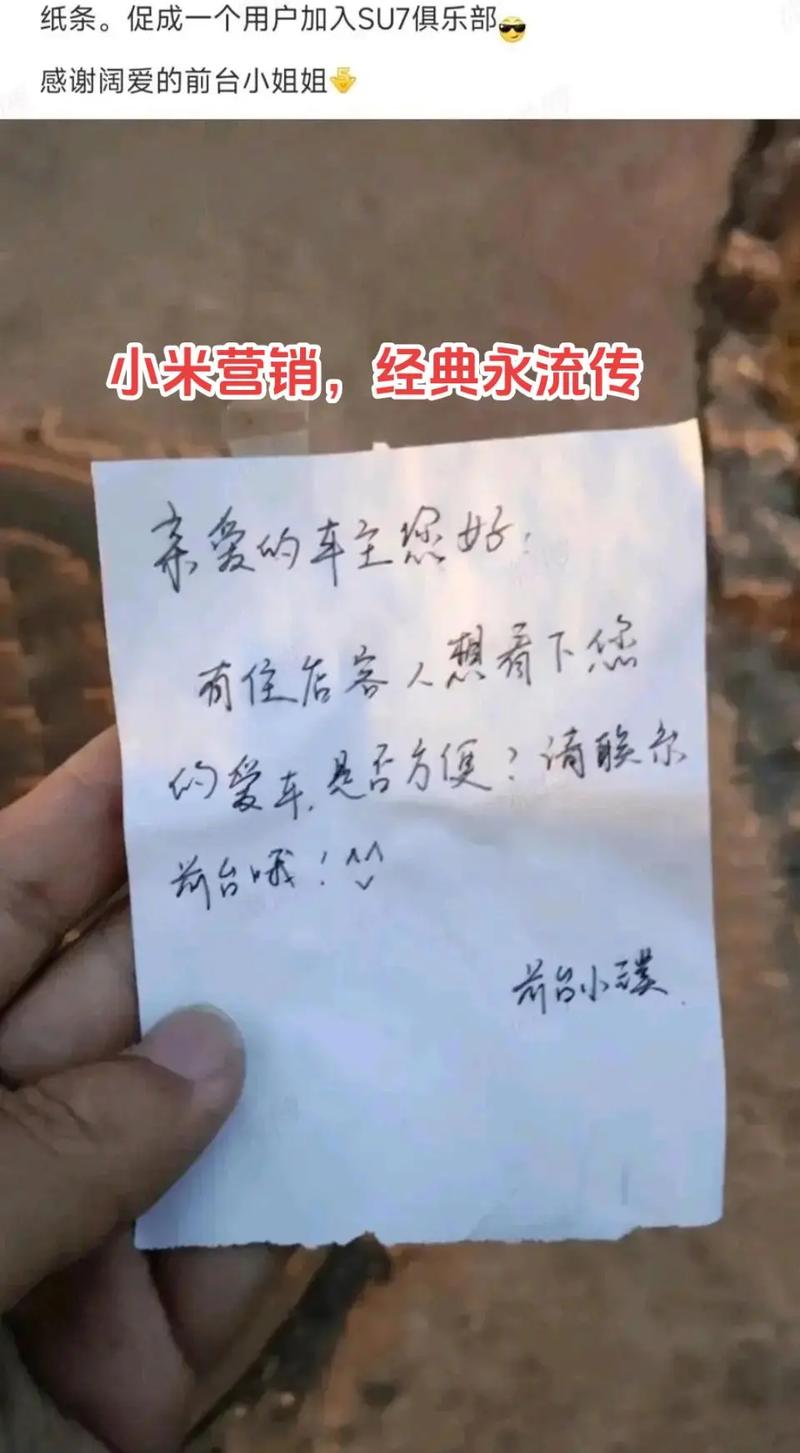 纸条。促成一个用户加入SU7俱乐部😎
感谢阔爱的前台小姐姐
小米营销，经典永流传
亲爱的车主您好：
有住店客人想看下您
的爱车，是否方便？请联系
前台哦！^^
前台小璞